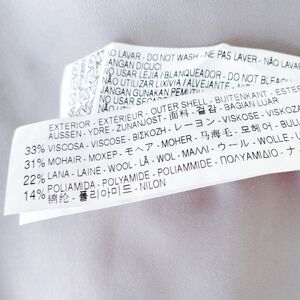 NO LAVAR - DO NOT WASH - NE PAS LAVER - NÃO LAVAR
JANGAN DICUCI
NO USAR LEJIA / BLANQUEADOR - DO NOT BLEACH
NÃO UTILIZAR LIXÍVIA / ALVEJANTE
JANGAN GUNAKAN PEMUTIH
NO USAR SECADORA
EXTERIOR - EXTÉRIEUR - OUTER SHELL - BUITENKANT -
AUSSEN - YDRE - ZUNANJOST - 面料 - 겉감 - BAGIAN LUAR
33% VISCOSA - VISCOSE - ΒΙΣΚΟΖΗ - レーヨン - VISKOSE - VISKOZY
31% MOHAIR - МОХЕР - モヘア - MOHER - 马海毛 - 모헤어 - BULU
22% LANA - LAINE - WOOL - LÃ - WOL - MALLÍ - ウール - WOLLE -
14% POLIAMIDA - POLYAMIDE - POLIAMMIDE - ΠΟΛΥΑΜΙΔΙΟ - ナ
锦纶 - 폴리아미드 - NILON